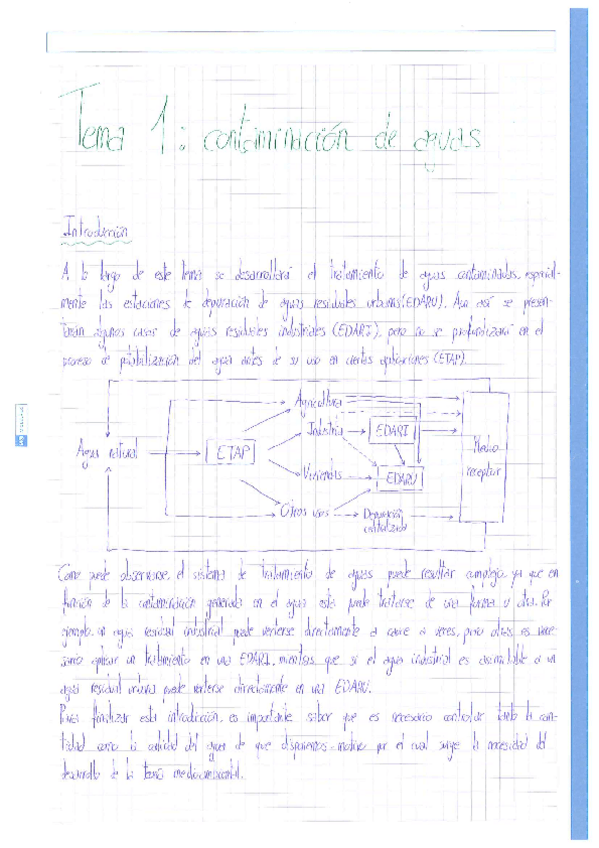 Tema 1: contaminación de aguas
Introducción
A lo largo de este tema se desarrollará el tratamiento de aguas contaminadas, especial-
mente las estaciones de depuración de aguas residuales urbanas (EDARU). Aun así se presen-
tarán algunos casos de aguas residuales industriales (EDARI), pero no se profundizará en el
proceso de potabilización del agua antes de su uso en ciertas aplicaciones (ETAP).
Agricultura
Industria
EDARI
Agua natural
ETAP
Medio
receptor
Viviendas
EDARU
Otros usos
Depuración
Como puede observarse, el sistema de tratamiento de aguas puede resultar complejo, ya que en
función de la contaminación generada en el agua esta puede tratarse de una forma u otra. Por
ejemplo, un agua residual industrial puede verterse directamente a cauce a veces, pero otras es nece-
sario aplicar un tratamiento en una EDARI, mientras que si el agua industrial es asimilable a un
agua residual urbana puede verterse directamente en una EDARU.
Para finalizar esta introducción, es importante saber que es necesario controlar tanto la can-
tidad como la calidad del agua de que disponemos, motivo por el cual surge la necesidad del
desarrollo de la